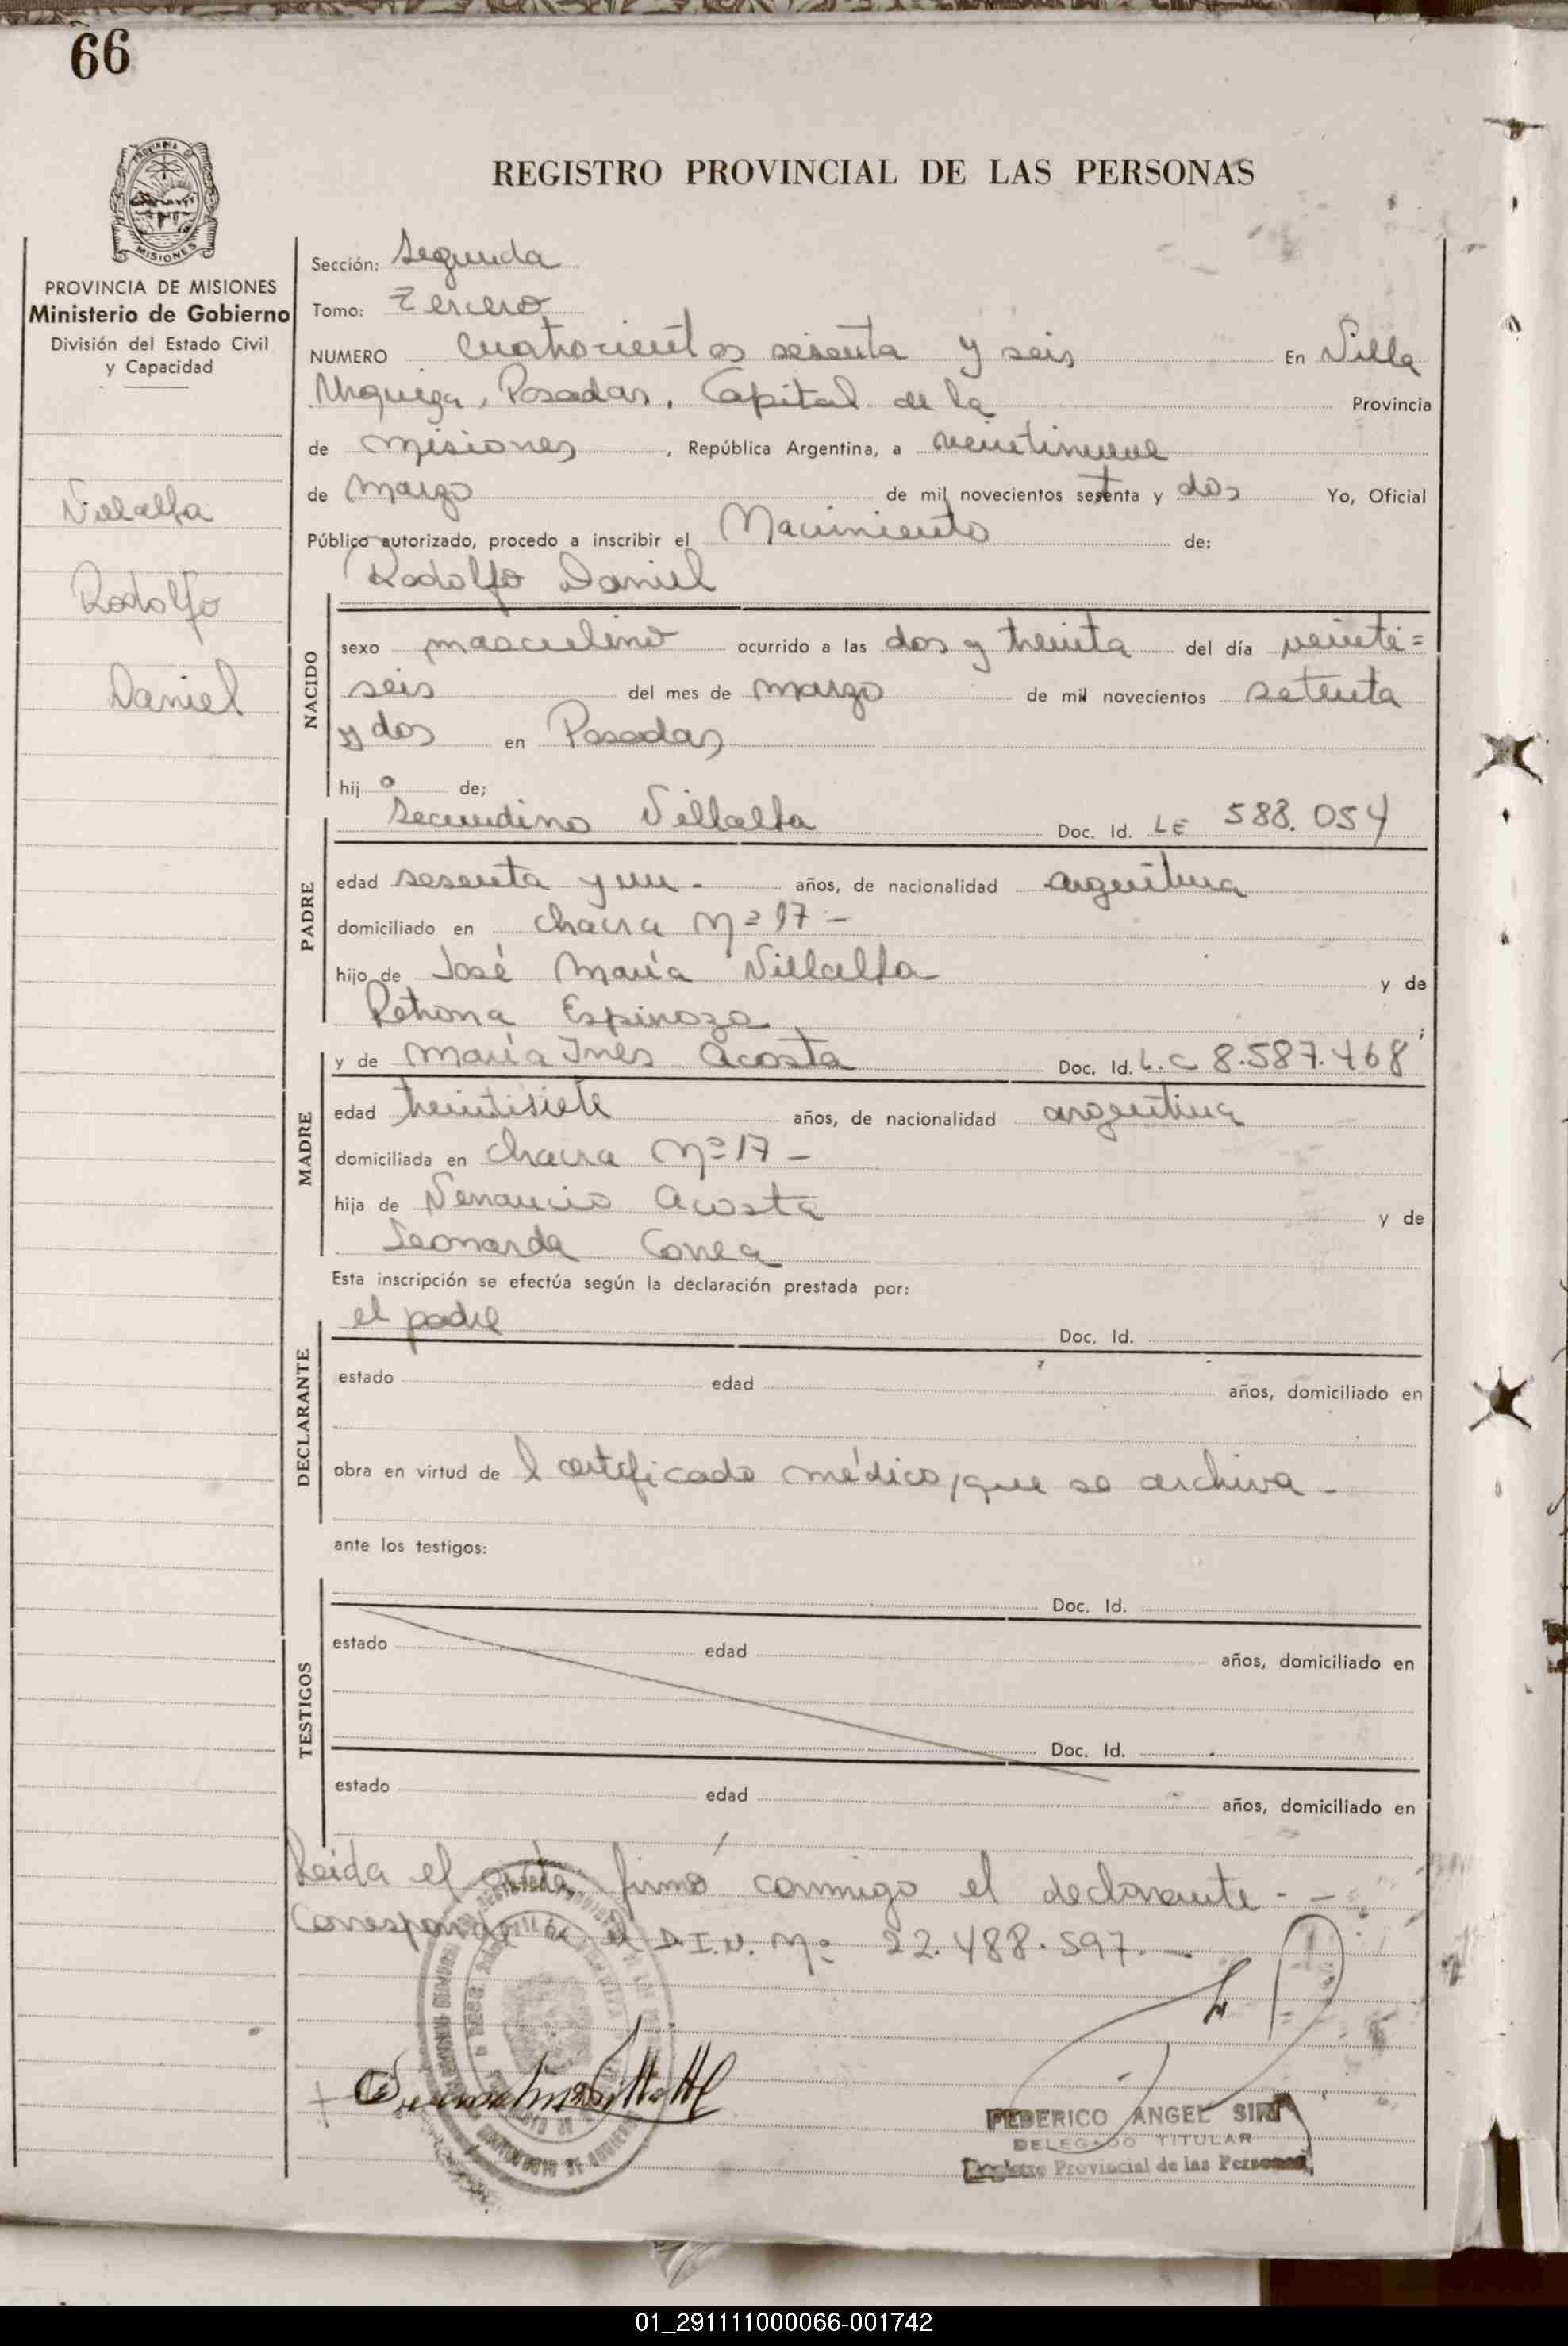 66
REGISTRO PROVINCIAL DE LAS PERSONAS
PROVINCIA DE MISIONES
Ministerio de Gobierno
División del Estado Civil
y Capacidad
Villalba
Rodolfo
Daniel
Sección: Segunda
Tomo: Tercero
NUMERO Cuatrocientos sesenta y seis En Villa
Urquiza, Posadas, Capital de la Provincia
de Misiones, República Argentina, a veintinueve
de Marzo de mil novecientos setenta y dos Yo, Oficial
Público autorizado, procedo a inscribir el Nacimiento de:
Rodolfo Daniel
NACIDO
sexo masculino ocurrido a las dos y treinta del día veinti=
seis del mes de marzo de mil novecientos setenta
y dos en Posadas
hijo de;
PADRE
Secundino Villalba Doc. Id. LE 588.054
edad sesenta y un - años, de nacionalidad argentina
domiciliado en chacra Nº 17 -
hijo de José María Villalba y de
Petrona Espinoza;
MADRE
y de María Inés Acosta Doc. Id. L.C 8.587.468
edad treintisiete años, de nacionalidad argentina
domiciliada en chacra Nº 17 -
hija de Venancio Acosta y de
Leonarda Correa
Esta inscripción se efectúa según la declaración prestada por:
DECLARANTE
el padre Doc. Id.
estado edad años, domiciliado en
obra en virtud de l certificado médico, que se archiva -
ante los testigos:
TESTIGOS
Doc. Id.
estado edad años, domiciliado en
Doc. Id.
estado edad años, domiciliado en
Leída el acta, firmó conmigo el declarante - -
Corresponde el D.I.N. Nº 22.488.597. -
FEDERICO ANGEL SIRI
DELEGADO TITULAR
Registro Provincial de las Personas
01_291111000066-001742